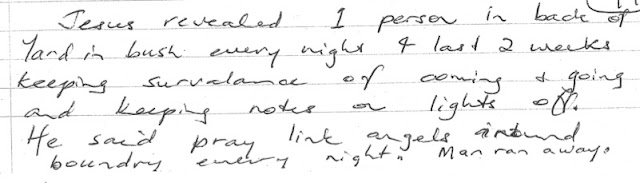 Jesus revealed 1 person in back of
Yard in bush every night 4 last 2 weeks
keeping survalance of coming & going
and keeping notes on lights off.
He said pray link angels around
boundry every night. Man ran away.